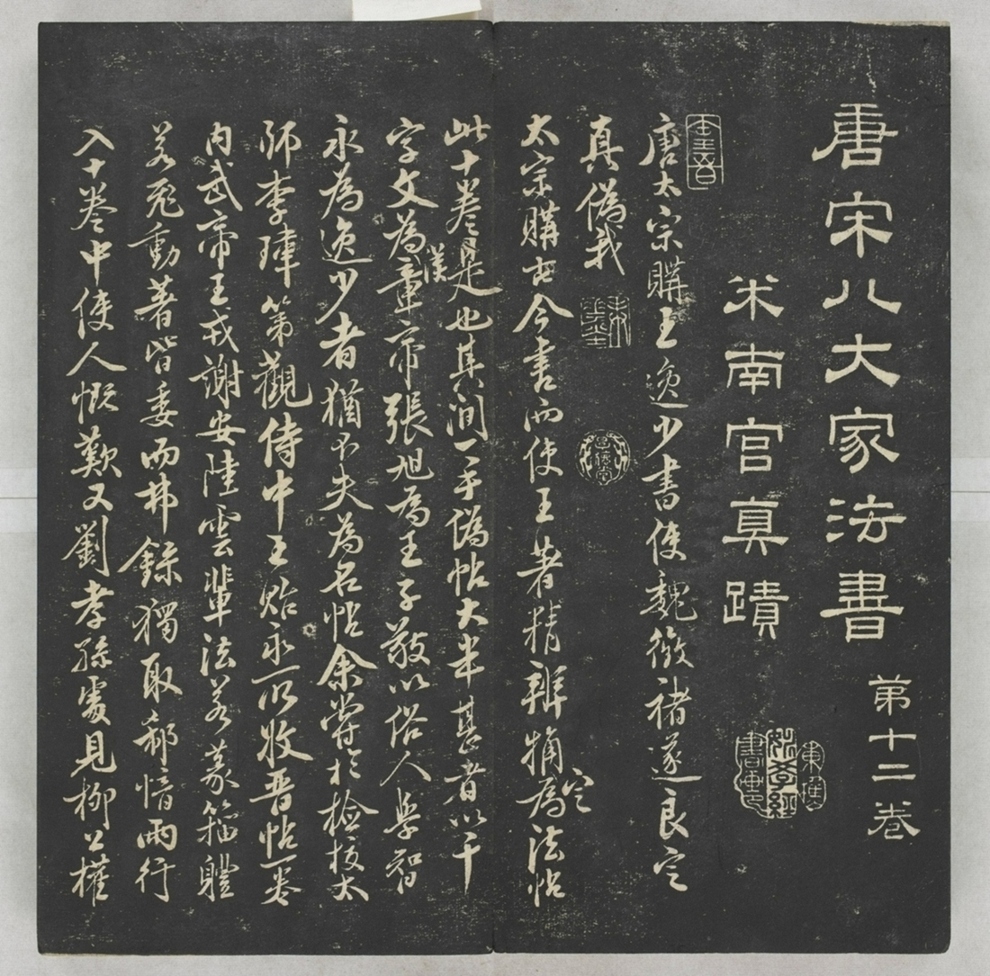 唐宋八大家法書 第十二卷
米南宮真蹟
唐太宗購王逸少書使魏徵褚遂良定
真偽我
太宗購古今書而使王著精辨確定為法帖
此十卷是也其間一手偽帖大半甚者以千
字文為漢章帝張旭為王子敬以俗人學智
永為逸少者猶不失為名帖余嘗於檢校太
師李瑋第觀侍中王貽永所收晉帖一卷
內武帝王戎謝安陸雲輩法若篆籀體
若飛動著皆委而弗錄獨取郗愔兩行
入十卷中使人慨歎又劉孝孫處見柳公權